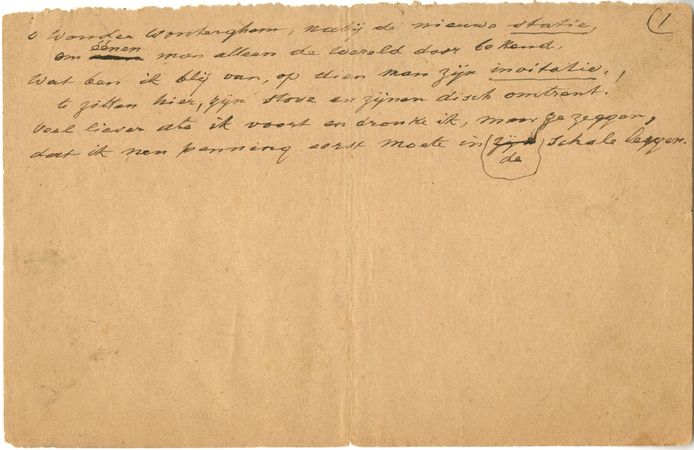 (1
o Wonder Wonterghem, nabij de nieuwe statie,
om éénen man alleen de wereld door bekend,
wat ben ik blij van, op dien man zijn invitatie,
te zitten hier, zijn stove en zijnen disch omtrent.
Veel liever ate ik voort en dronke ik, man ge zeggen,
dat ik nen penning eerst moete in de schale leggen.